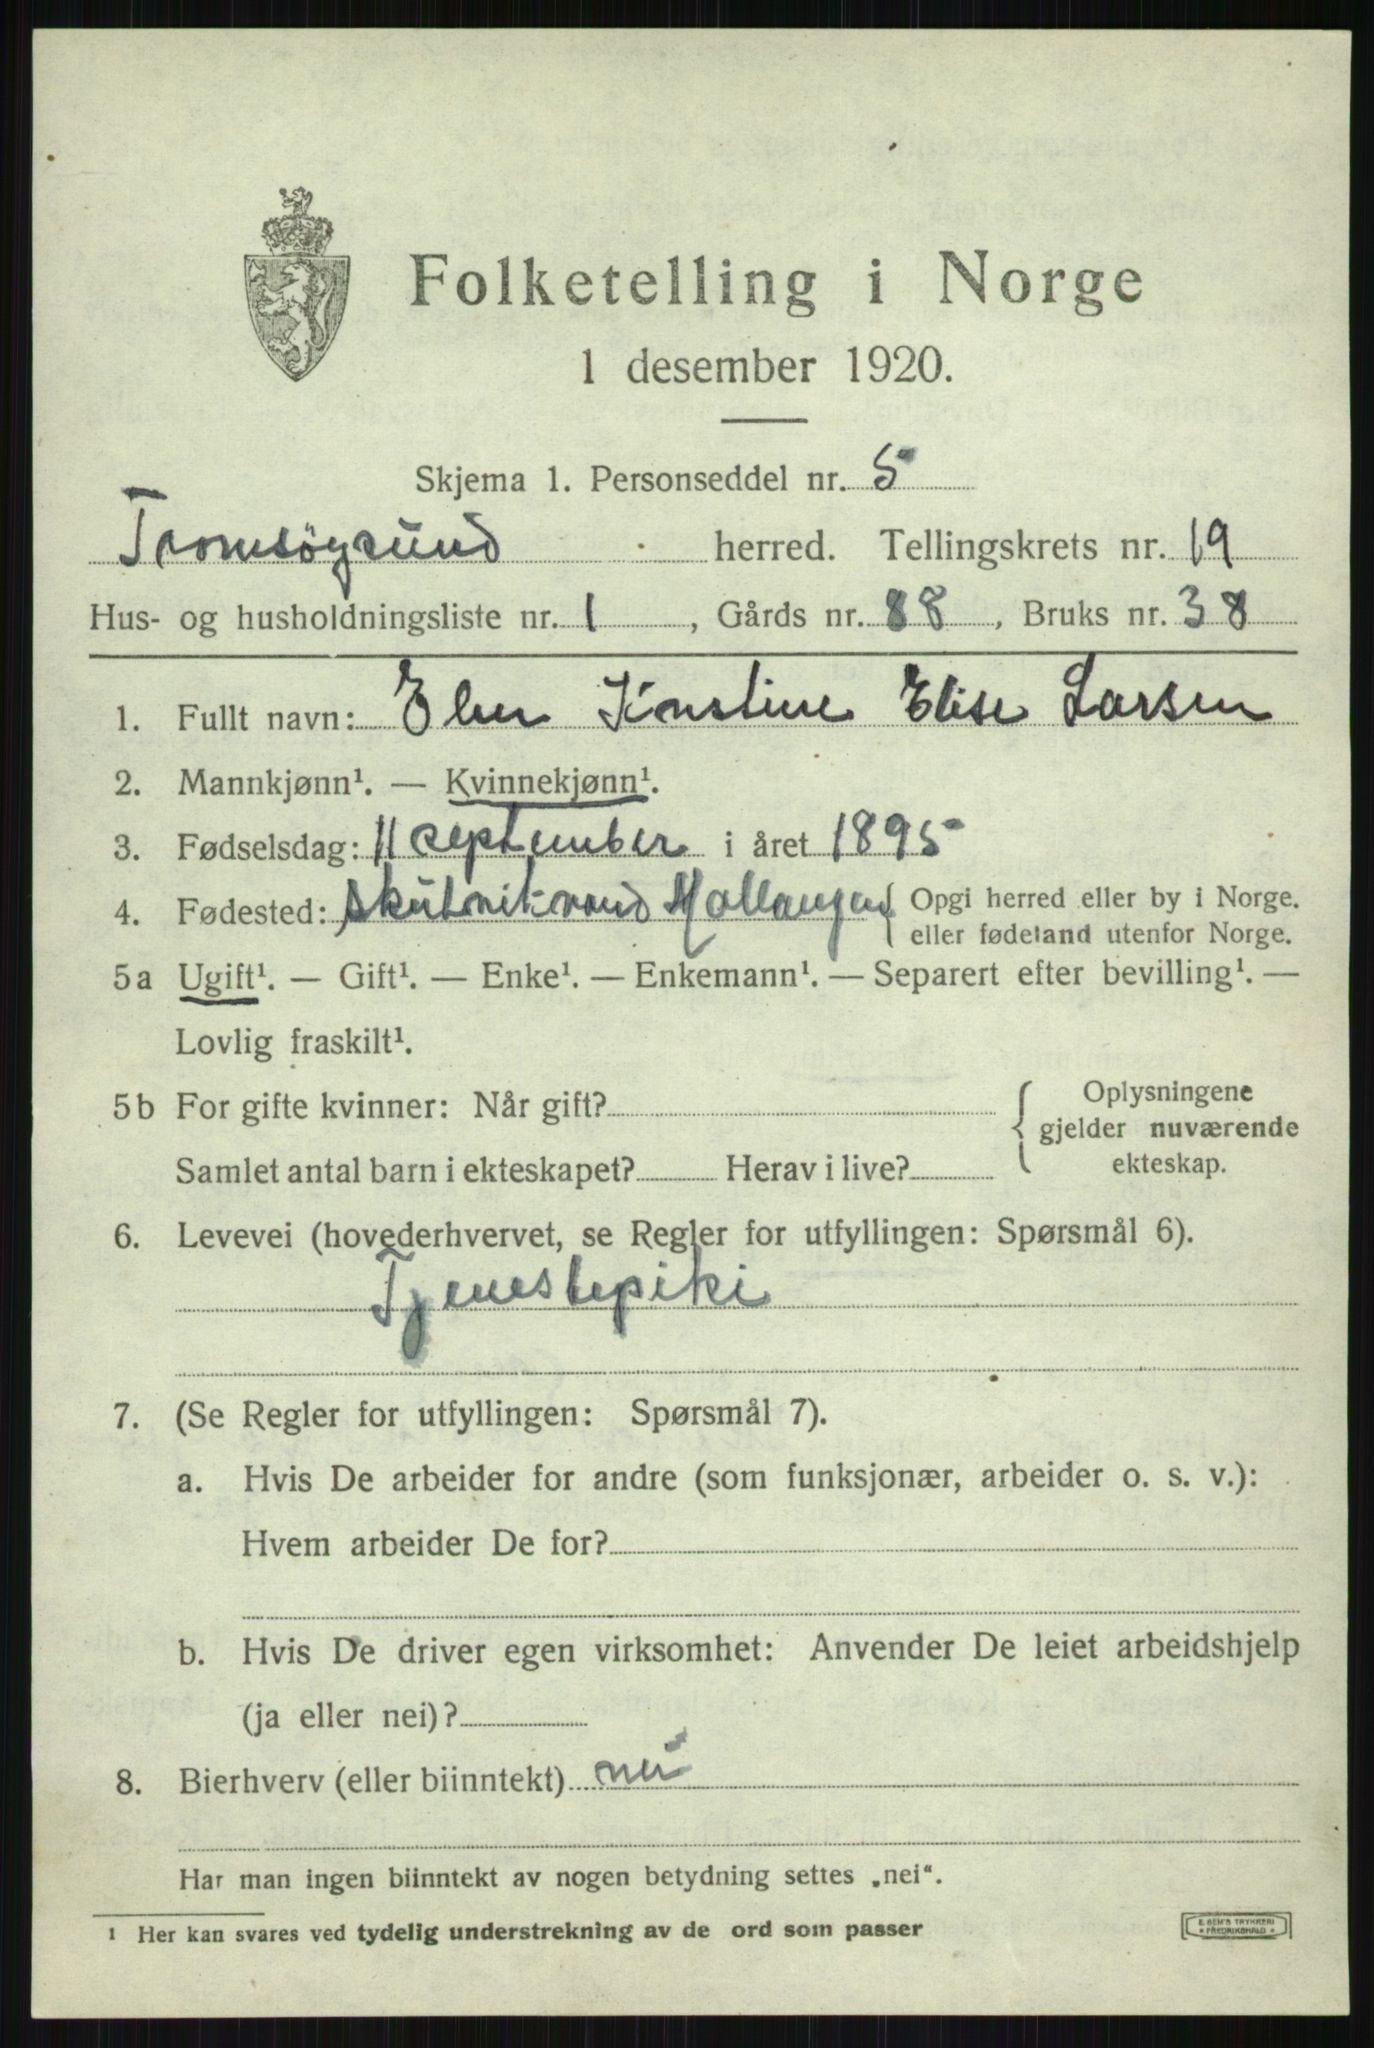 Folketelling i Norge
1 desember 1920.
Skjema 1. Personseddel nr. 5
Tromsöysund herred. Tellingskrets nr. 19
Hus- og husholdningsliste nr. 1, Gårds nr. 88, Bruks nr. 38
1. Fullt navn: Elen Kirstine Elise Larsen
2. Mannkjønn¹. — Kvinnekjønn¹.
3. Fødselsdag: 11 september i året 1895
4. Fødested: Mallangen { Opgi herred eller by i Norge.
eller fødeland utenfor Norge.
5a Ugift¹. — Gift¹. — Enke¹. — Enkemann¹. — Separert efter bevilling¹. —
Lovlig fraskilt¹.
5b For gifte kvinner: Når gift? { Oplysningene
gjelder nuværende
Samlet antal barn i ekteskapet? Herav i live? ekteskap.
6. Levevei (hovederhvervet, se Regler for utfyllingen: Spørsmål 6).
Tjenestepike
7. (Se Regler for utfyllingen: Spørsmål 7).
a. Hvis De arbeider for andre (som funksjonær, arbeider o. s. v.):
Hvem arbeider De for?
b. Hvis De driver egen virksomhet: Anvender De leiet arbeidshjelp
(ja eller nei)?
8. Bierhverv (eller biinntekt) nei
Har man ingen biinntekt av nogen betydning settes „nei“.
¹ Her kan svares ved tydelig understrekning av de ord som passer
E. SEM'S TRYKKERI
FREDRIKSHALD